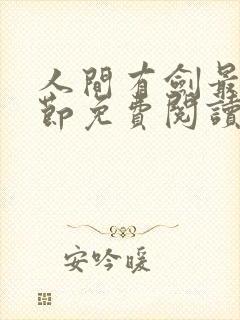 人間有劍最
節免費閱讀
安吟暖